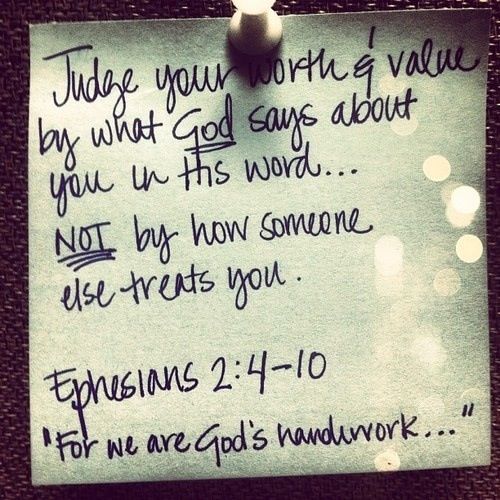 Judge your worth & value
by what God says about
you in His word...
NOT by how someone
else treats you.
Ephesians 2:4-10
"For we are God's handiwork..."